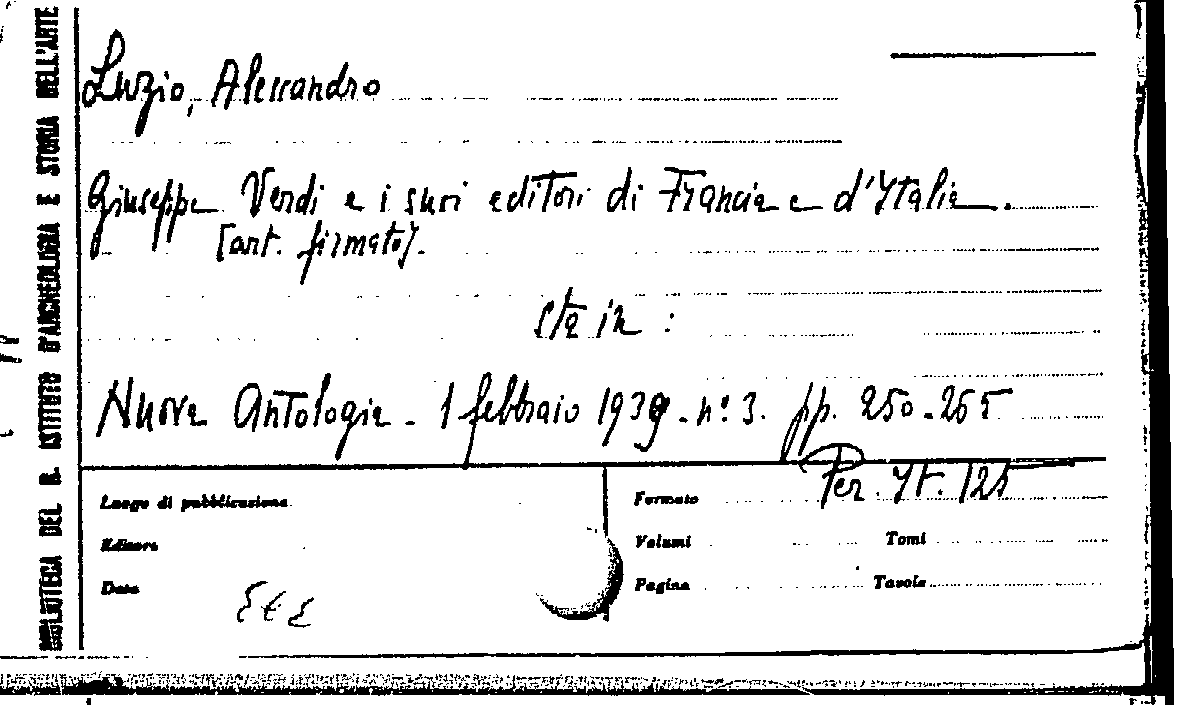 BIBLIOTECA DEL R. ISTITUTO D'ARCHEOLOGIA E STORIA DELL'ARTE
Luzio, Alessandro
Giuseppe Verdi e i suoi editori di Francia e d'Italia.
[art. firmato].
sta in :
Nuova Antologia - 1 febbraio 1939 - n° 3. pp. 250-265
Per. It. 125
Luogo di pubblicazione
Formato
Editore
Volumi
Tomi
Data
Pagine
Tavole